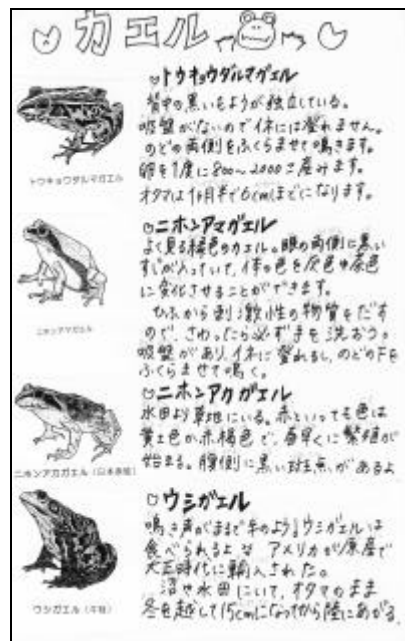 カエル
トウキョウダルマガエル
背中の黒いもようが独立している。
吸盤がないのでイネには登れません。
のどの両側をふくらませて鳴きます。
卵を1度に800〜2000コ産みます。
オタマは1ヶ月半で6cmほどになります。
トウキョウダルマガエル
ニホンアマガエル
よく見る緑色のカエル。眼の両側に黒い
すじが入っていて、体の色を灰色や茶色
に変化させることができます。
ひふから刺激性の物質をだす
ので、さわったら必ず手を洗おう。
吸盤があり、イネに登れるし、のどの下を
ふくらませて鳴く。
ニホンアマガエル
ニホンアカガエル
水田より草地にいる。赤といっても色は
黄土色か赤褐色で、春早くに繁殖が
始まる。腹側に黒い斑点があるよ
ニホンアカガエル(日本赤蛙)
ウシガエル
鳴き声がまるで牛のよう!ウシガエルは
食べられるよ アメリカが原産で
大正時代に輸入された。
沼や水田にいて、オタマのまま
冬を越して15cmになってから陸にあがる。
ウシガエル(牛蛙)